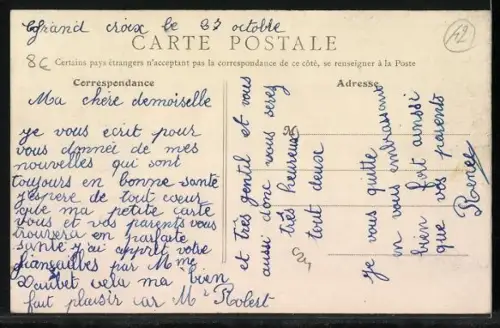 Grand croix le 23 octobre
CARTE POSTALE
42
8€
Certains pays étrangers n'acceptant pas la correspondance de ce côté, se renseigner à la Poste
Correspondance
Adresse
Ma chère demoiselle
je vous écrit pour
vous donnée de mes
nouvelles qui sont
toujours en bonne santé
j'espère de tout cœur
que ma petite carte
vous et vos parents vous
trouvera en parfaite
santé j'ai appris votre
fiançailles par Mme
cela ma bien
fait plaisir car Mr Robert
et très gentil et vous
aussi donc vous serez
très heureux
tout deux
je vous quitte
en vous embrassant
bien fort ainsi
que vos parents
Renée